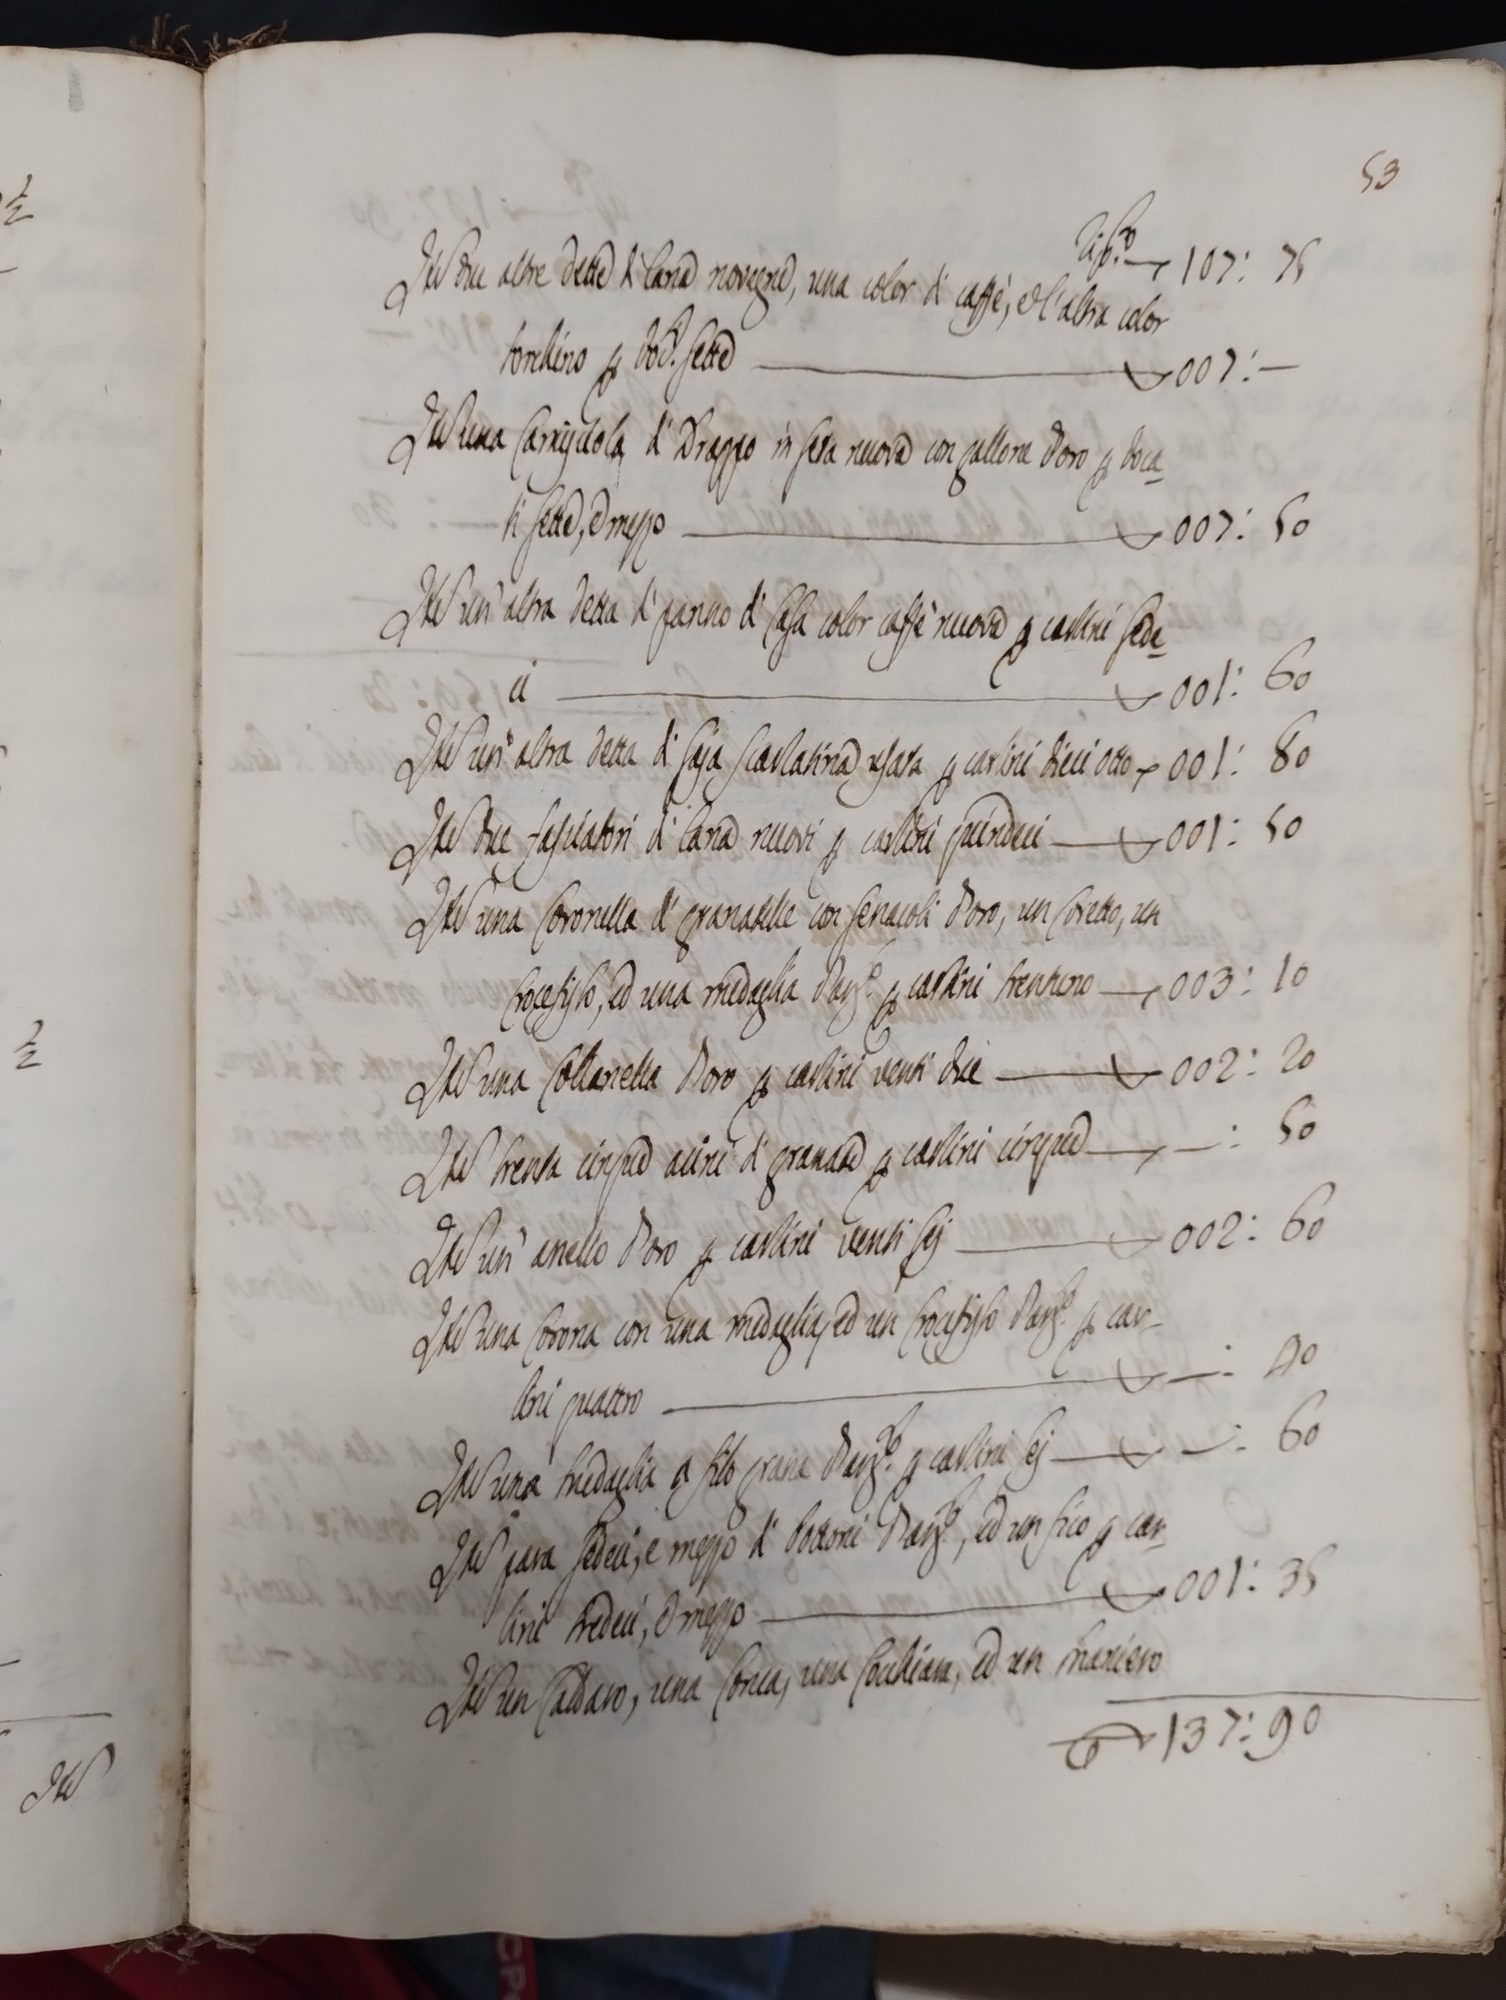 53
Rip.to 107: 75
Ite due altre dette di lana novegna, una color di caffè, e l'altra color
torchino p docti sette 007: —
Ite una Camiciola di Drappo in seta nuova con gallone d'oro p doca-
ti sette, e mezzo 007: 50
Ite un'altra detta di panno di casa color caffè nuova p carlini sede-
ci 001: 60
Ite un'altra detta di saja scarlatina usata p carlini dieci otto 001: 80
Ite due fasciatori di lana nuovi p carlini quindeci 001: 50
Ite una Coronella di granatelle con senacoli d'oro, un Coretto, un
Crocefisso, ed una medaglia d'arg.to p carlini trentuno 003: 10
Ite una Collanetta d'oro p carlini venti due 002: 20
Ite trenta cinque acini di granate p carlini cinque —: 50
Ite un'anello d'oro p carlini venti sej 002: 60
Ite una Corona con una medaglia, ed un Crocefisso d'arg.to p car-
lini quattro —: 40
Ite una medaglia a filo grana d'arg.to p carlini sej —: 60
Ite para sedeci, e mezzo di bottoni d'arg.to, ed un fico p car-
lini tredeci, e mezzo 001: 35
Ite un Caldaro, una Conca, una Cocchiara, ed un maniero
137: 90
Ite